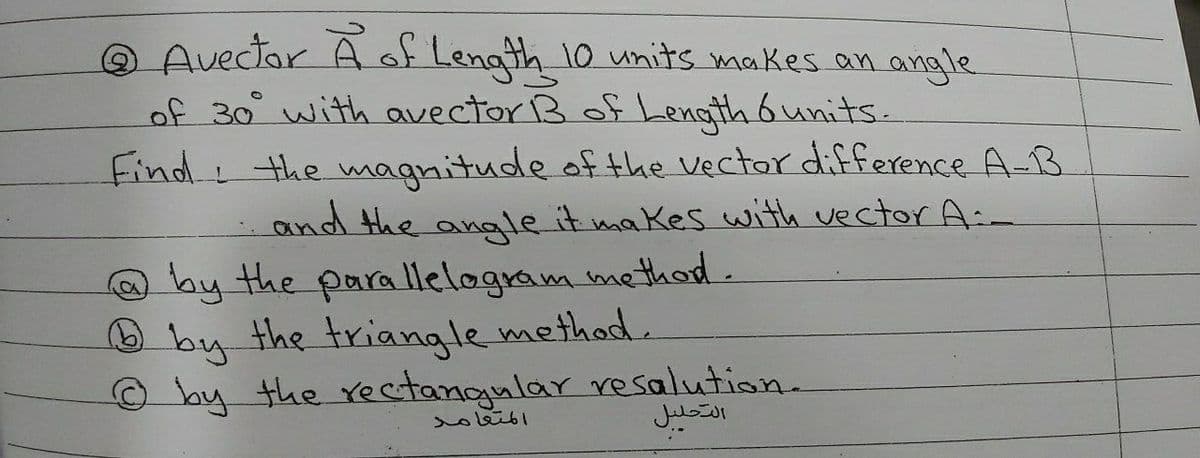 ② Avector A⃗ of Length 10 units makes an angle
of 30° with avector B⃗ of Length 6 units.
Find : the magnitude of the vector difference A-B
and the angle it makes with vector A:-
ⓐ by the parallelogram method.
ⓑ by the triangle method.
ⓒ by the rectangular resalution.
المتعامد التحليل